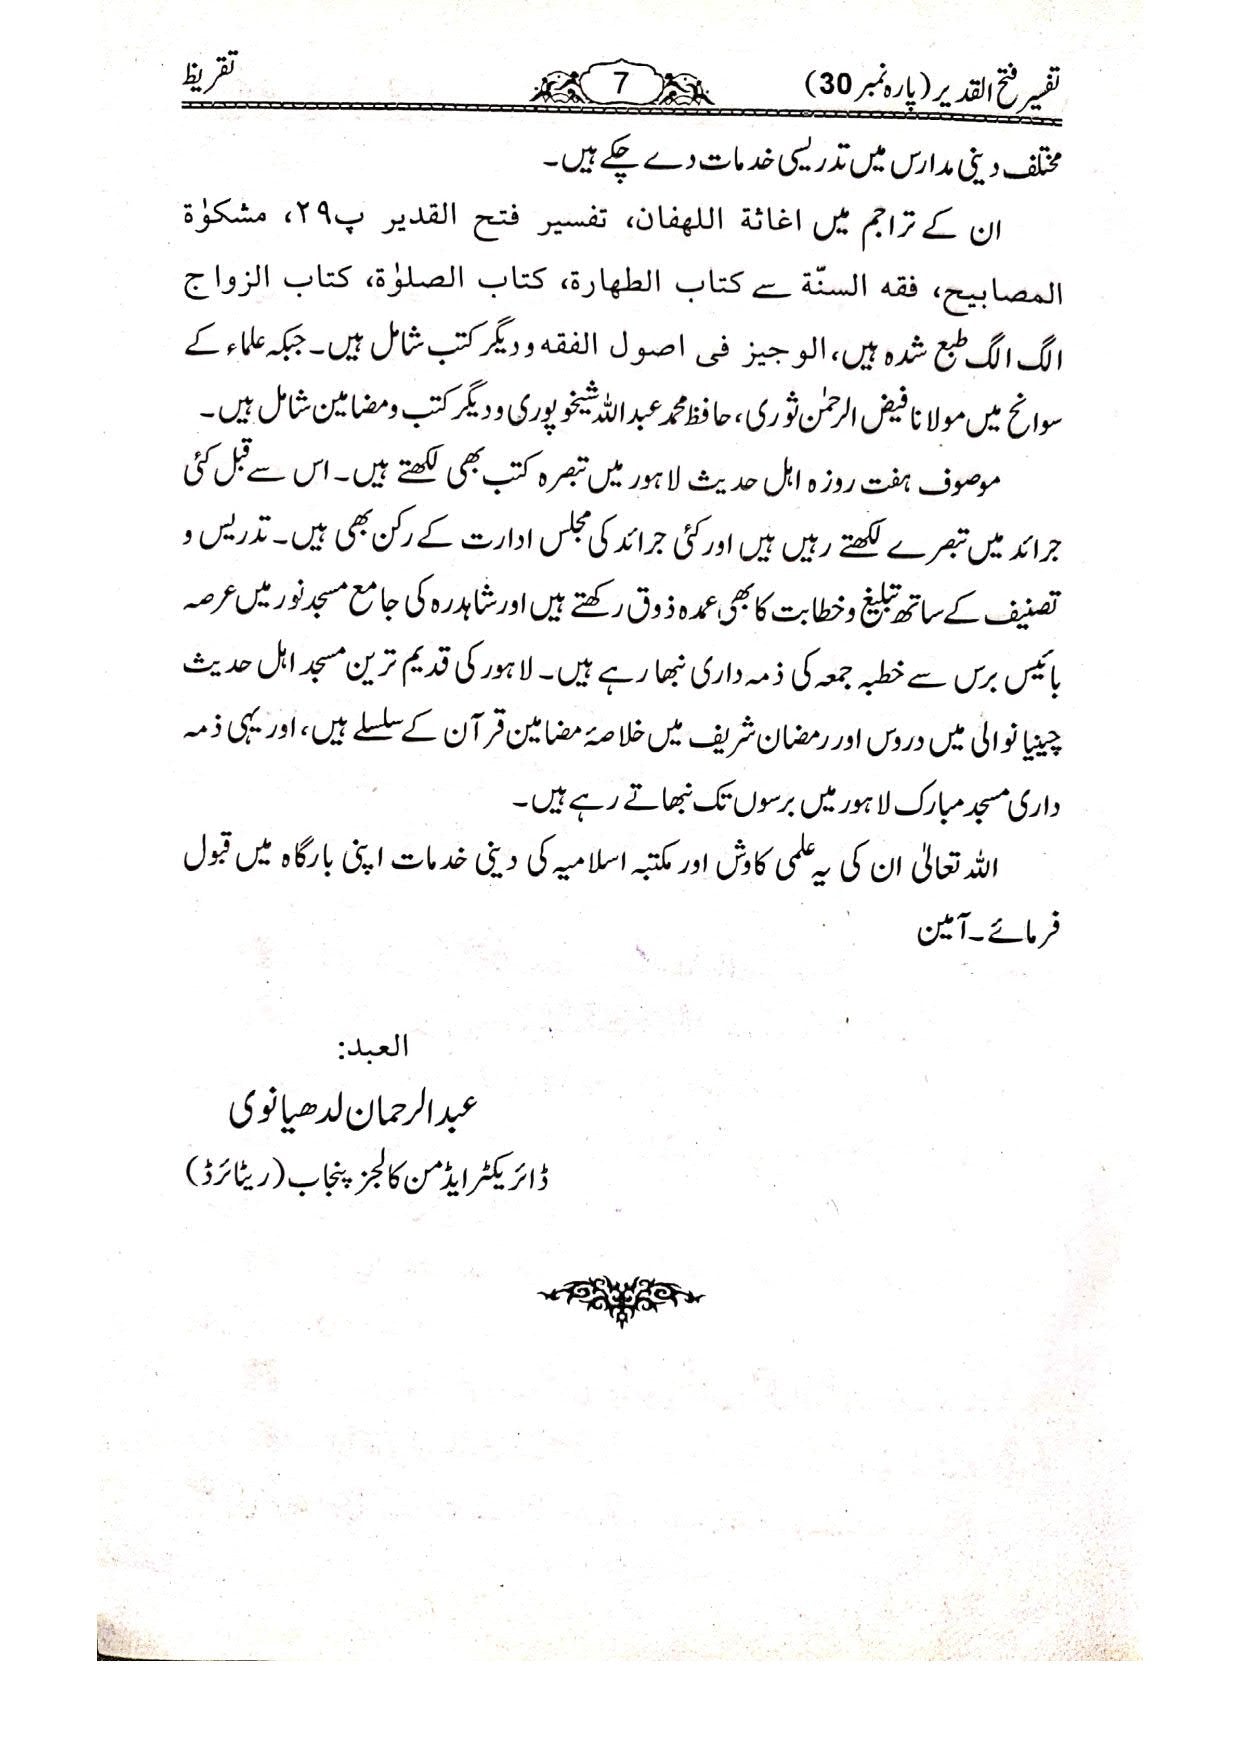 تفسیر فتح القدیر (پارہ نمبر 30) 7 تقریظ
مختلف دینی مدارس میں تدریسی خدمات دے چکے ہیں۔
ان کے تراجم میں اغاثة اللهفان، تفسیر فتح القدیر پ۲۹، مشکوٰة
المصابیح، فقه السنّة سے کتاب الطهارة، کتاب الصلوٰة، کتاب الزواج
الگ الگ طبع شدہ ہیں، الوجیز فی اصول الفقه و دیگر کتب شامل ہیں۔ جبکہ علماء کے
سوانح میں مولانا فیض الرحمٰن ثوری، حافظ محمد عبد اللہ شیخوپوری و دیگر کتب و مضامین شامل ہیں۔
موصوف ہفت روزہ اہل حدیث لاہور میں تبصرہ کتب بھی لکھتے ہیں۔ اس سے قبل کئی
جرائد میں تبصرے لکھتے رہیں ہیں اور کئی جرائد کی مجلس ادارت کے رکن بھی ہیں۔ تدریس و
تصنیف کے ساتھ تبلیغ و خطابت کا بھی عمدہ ذوق رکھتے ہیں اور شاہدرہ کی جامع مسجد نور میں عرصہ
بائیس برس سے خطبہ جمعہ کی ذمہ داری نبھا رہے ہیں۔ لاہور کی قدیم ترین مسجد اہل حدیث
چینیانوالی میں دروس اور رمضان شریف میں خلاصۂ مضامین قرآن کے سلسلے ہیں، اور یہی ذمہ
داری مسجد مبارک لاہور میں برسوں تک نبھاتے رہے ہیں۔
اللہ تعالیٰ ان کی یہ علمی کاوش اور مکتبہ اسلامیہ کی دینی خدمات اپنی بارگاہ میں قبول
فرمائے۔ آمین
العبد:
عبد الرحمان لدھیانوی
ڈائریکٹر ایڈمن کالجز پنجاب (ریٹائرڈ)